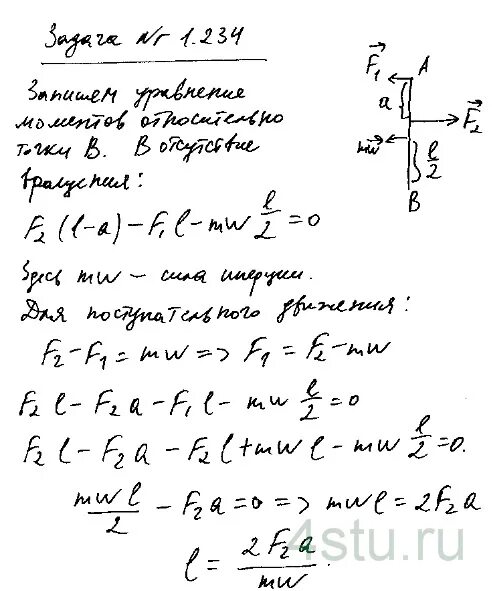 Задача № 1.234
Запишем уравнение
моментов относительно
точки B. В отсутствие
вращения:
F₂(l-a)-F₁l-mw l/2=0
Здесь mw – сила инерции.
Для поступательного движения:
F₂-F₁=mw=>F₁=F₂-mw
F₂l-F₂a-F₁l-mw l/2=0
F₂l-F₂a-F₂l+mwl-mw l/2=0.
mwl/2-F₂a=0=>mwl=2F₂a
l=2F₂a/mw.
F₁ A
a
F₂
mw
l/2
B
4stu.ru